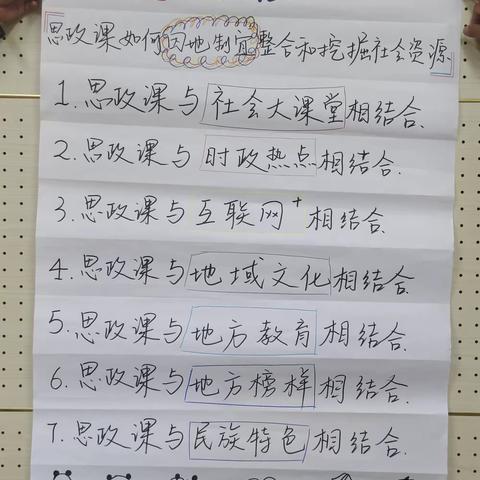 思政课如何因地制宜整合和挖掘社会资源
1.思政课与社会大课堂相结合.
2.思政课与时政热点相结合.
3.思政课与互联网+相结合.
4.思政课与地域文化相结合
5.思政课与地方教育相结合.
6.思政课与地方榜样相结合.
7.思政课与民族特色相结合.